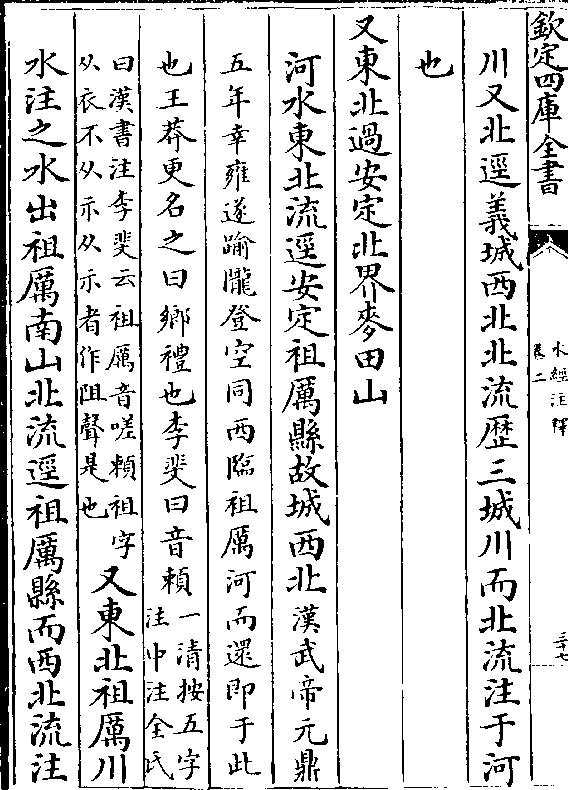 欽定四庫全書
水經注釋
卷二
三十七
川又北逕義城西北北流歴三城川而北流注于河
也
又東北過安定北界麥田山
河水東北流逕安定祖厲縣故城西北漢武帝元鼎
五年幸雍遂踰隴登空同西臨祖厲河而還即于此
也王莽更名之曰鄉禮也李斐曰音賴一清按五字
注中注全氏
曰漢書注李斐云祖厲音嗟賴祖字
从衣不从示从示者作阻聲是也又東北祖厲川
水注之水出祖厲南山北流逕祖厲縣而西北流注